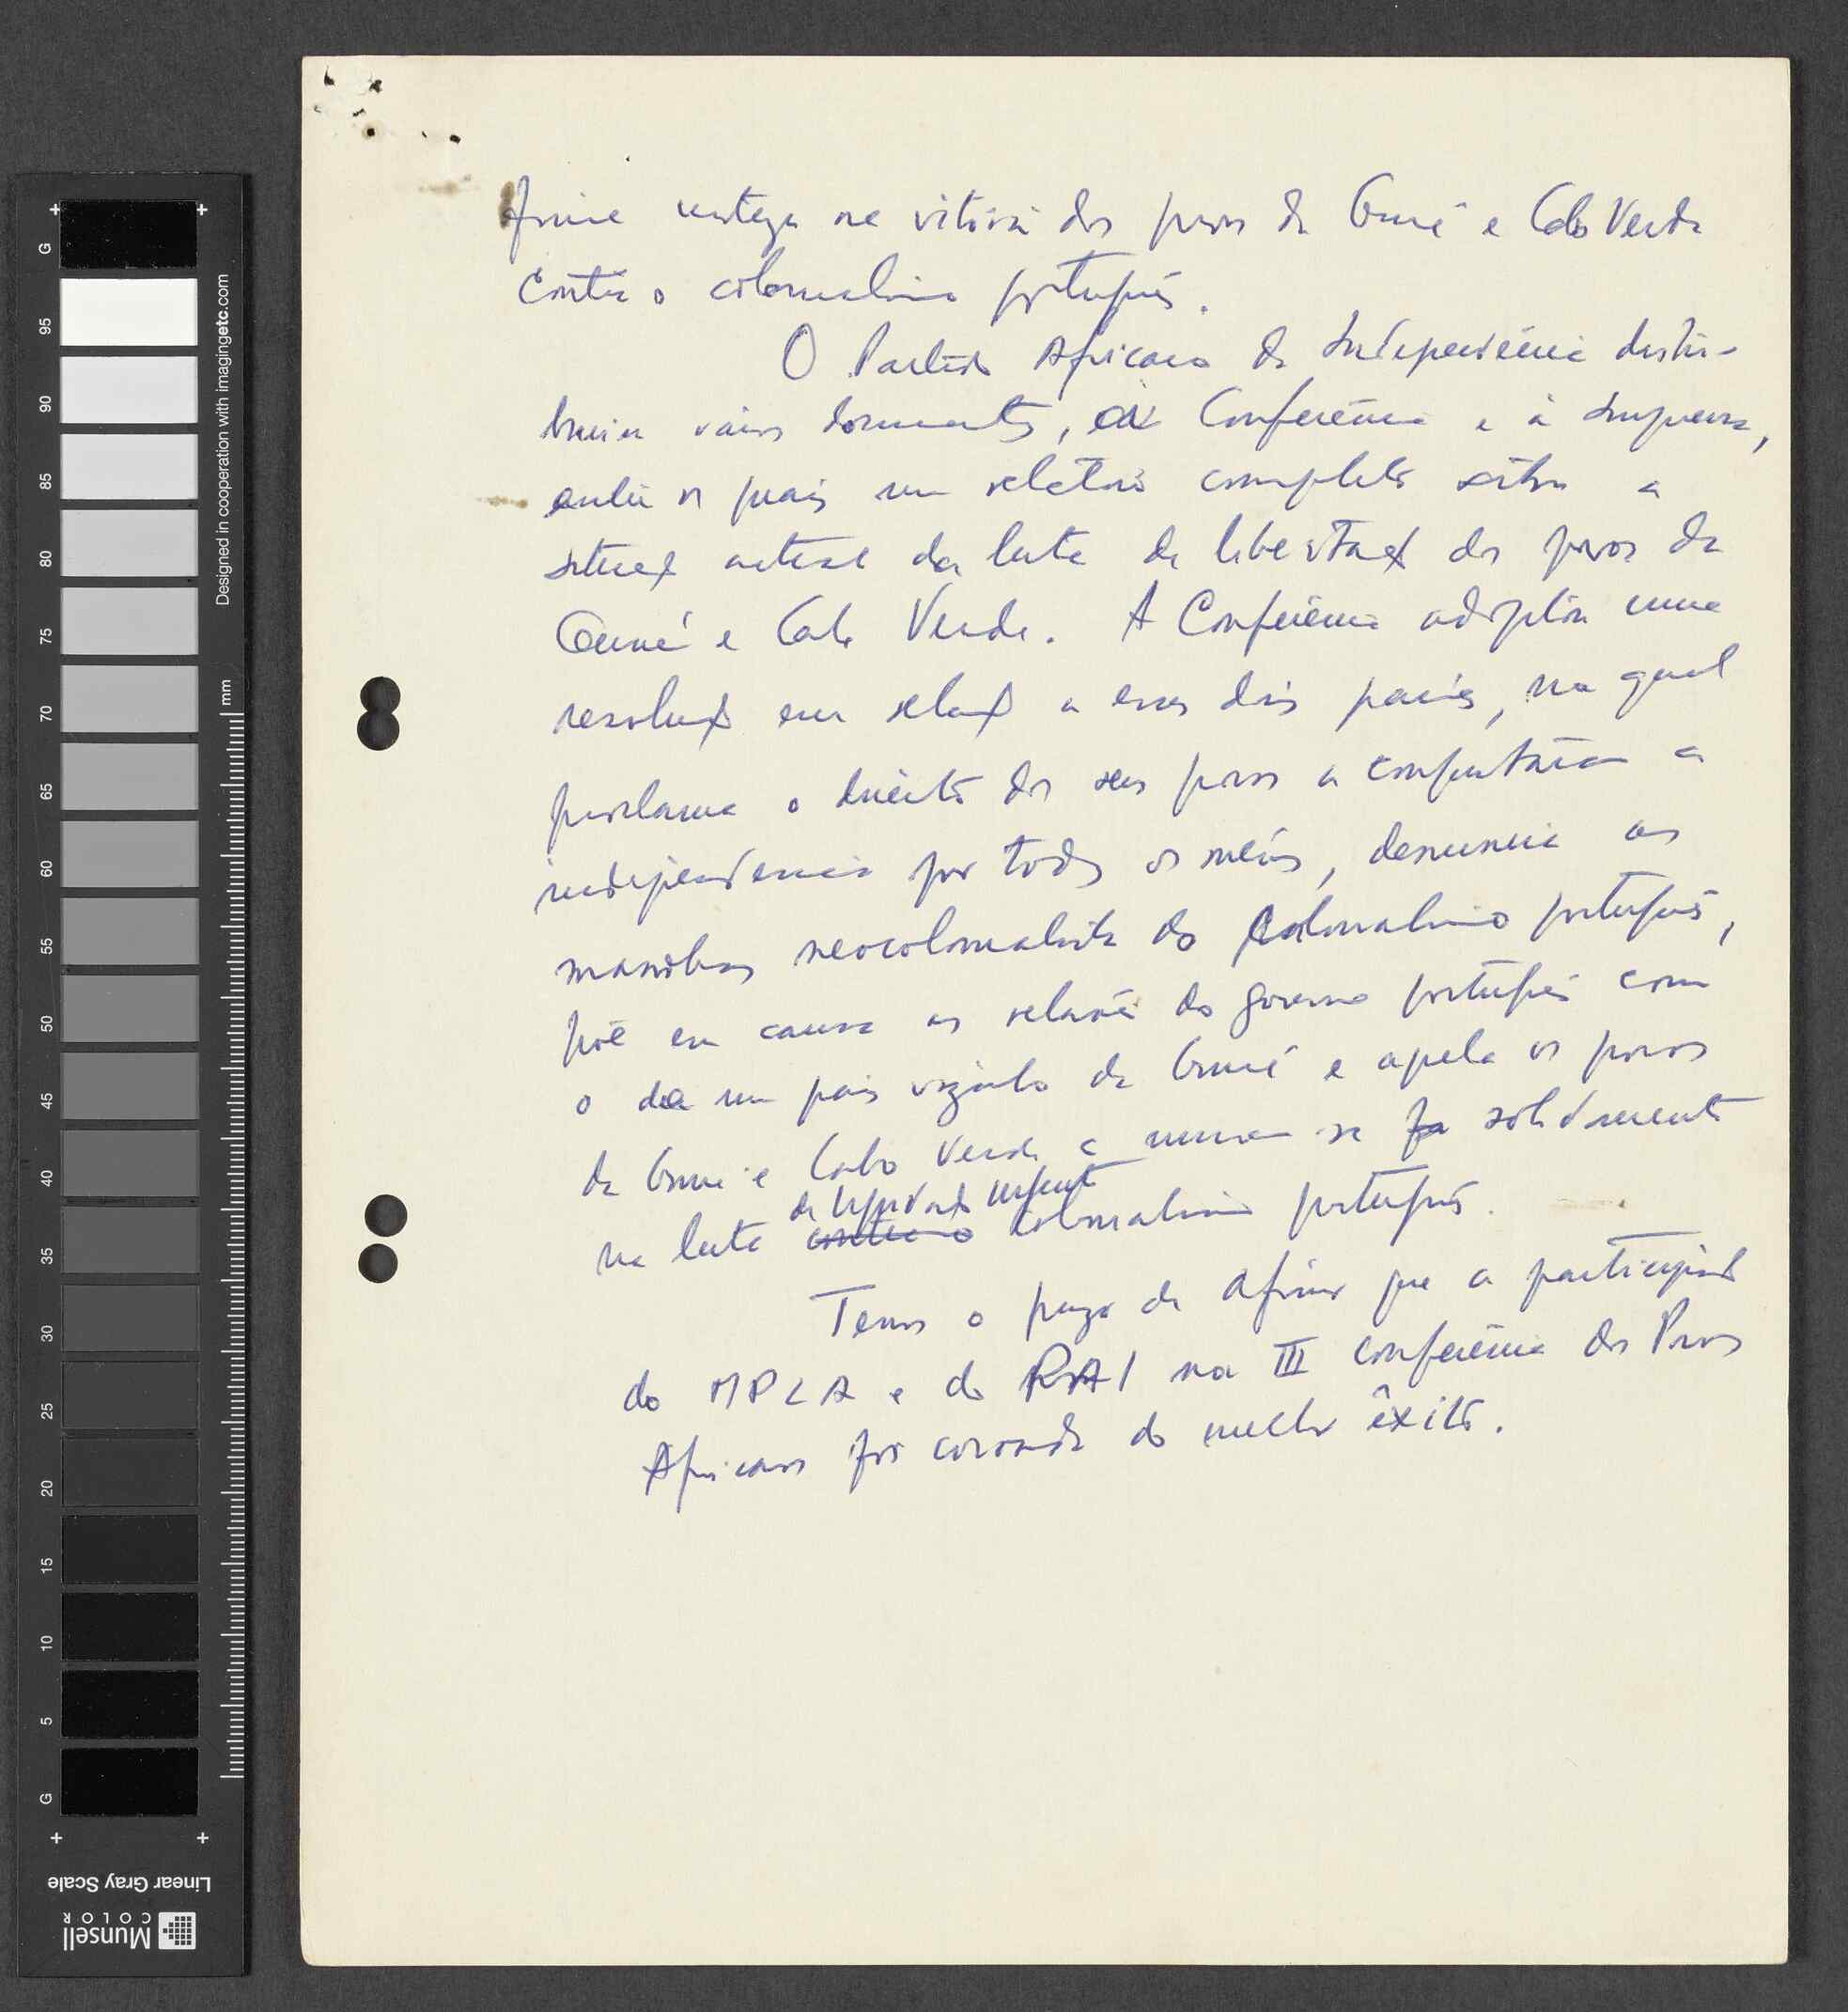 firme certeza na vitória dos povos da Guiné e Cabo Verde
contra o colonialismo português.
O Partido Africano da Independência distri-
buiu vários documentos, à Conferência e à Imprensa,
entre os quais um relatório completo sobre a
situação actual da luta de libertação dos povos da
Guiné e Cabo Verde. A Conferência adoptou uma
resolução em relação a esses dois países, na qual
proclama o direito dos seus povos a conquistarem a
independência por todos os meios, denuncia as
manobras neocolonialistas do colonialismo português,
põe em causa as relações do governo português com
o de um país vizinho da Guiné e apela os povos
da Guiné e Cabo Verde a unirem-se solidamente
de liquidação urgente
na luta contra o colonialismo português.
Temos o prazer de afirmar que a participação
do MPLA e do PAI na III conferência dos Povos
Africanos foi coroada do melhor êxito.
G
95
90
85
80
75
70
65
60
55
50
45
40
35
30
25
20
15
10
5
G
mm
Designed in cooperation with imagingetc.com
Linear Gray Scale
Munsell
COLOR